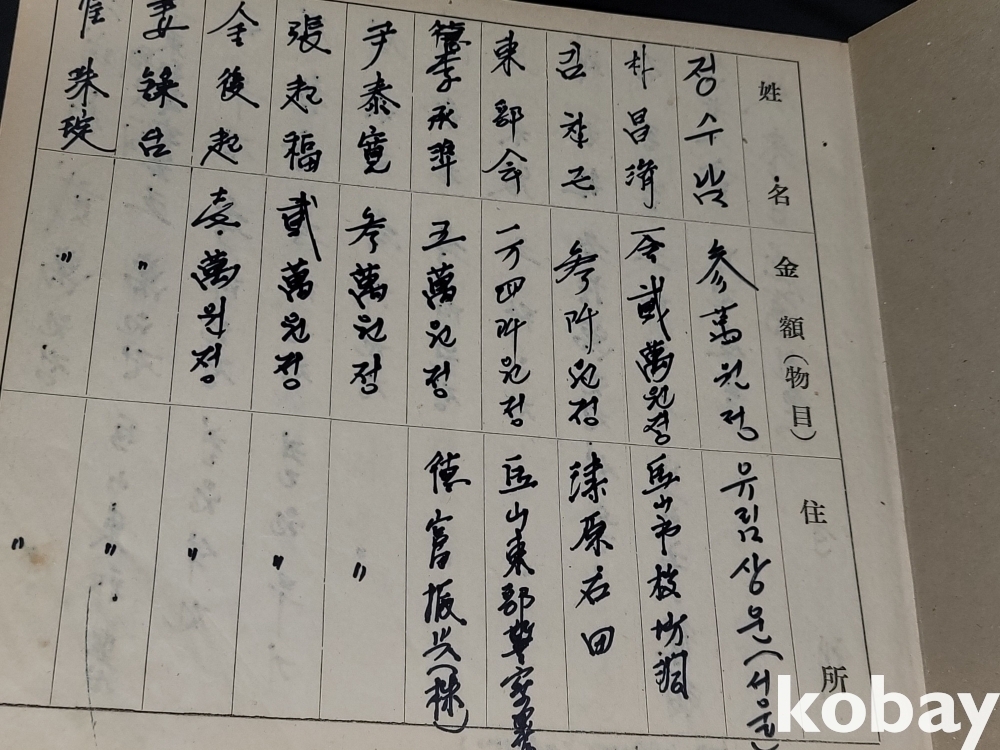 姓名 金額(物目) 住所
정수남 参萬원정 유림상운(서울)
朴昌濟 一金貳萬원정 馬山市 校坊洞
김 参阡원정 漆原石田
東部会 一万四阡원정 馬山東部
李承 五萬원정 德富振兴(株)
尹泰寬 参萬원정 〃
張起福 貳萬원정 〃
金後起 壹萬원정 〃
姜錄台 〃 〃
崔珠琔 〃 〃
kobay